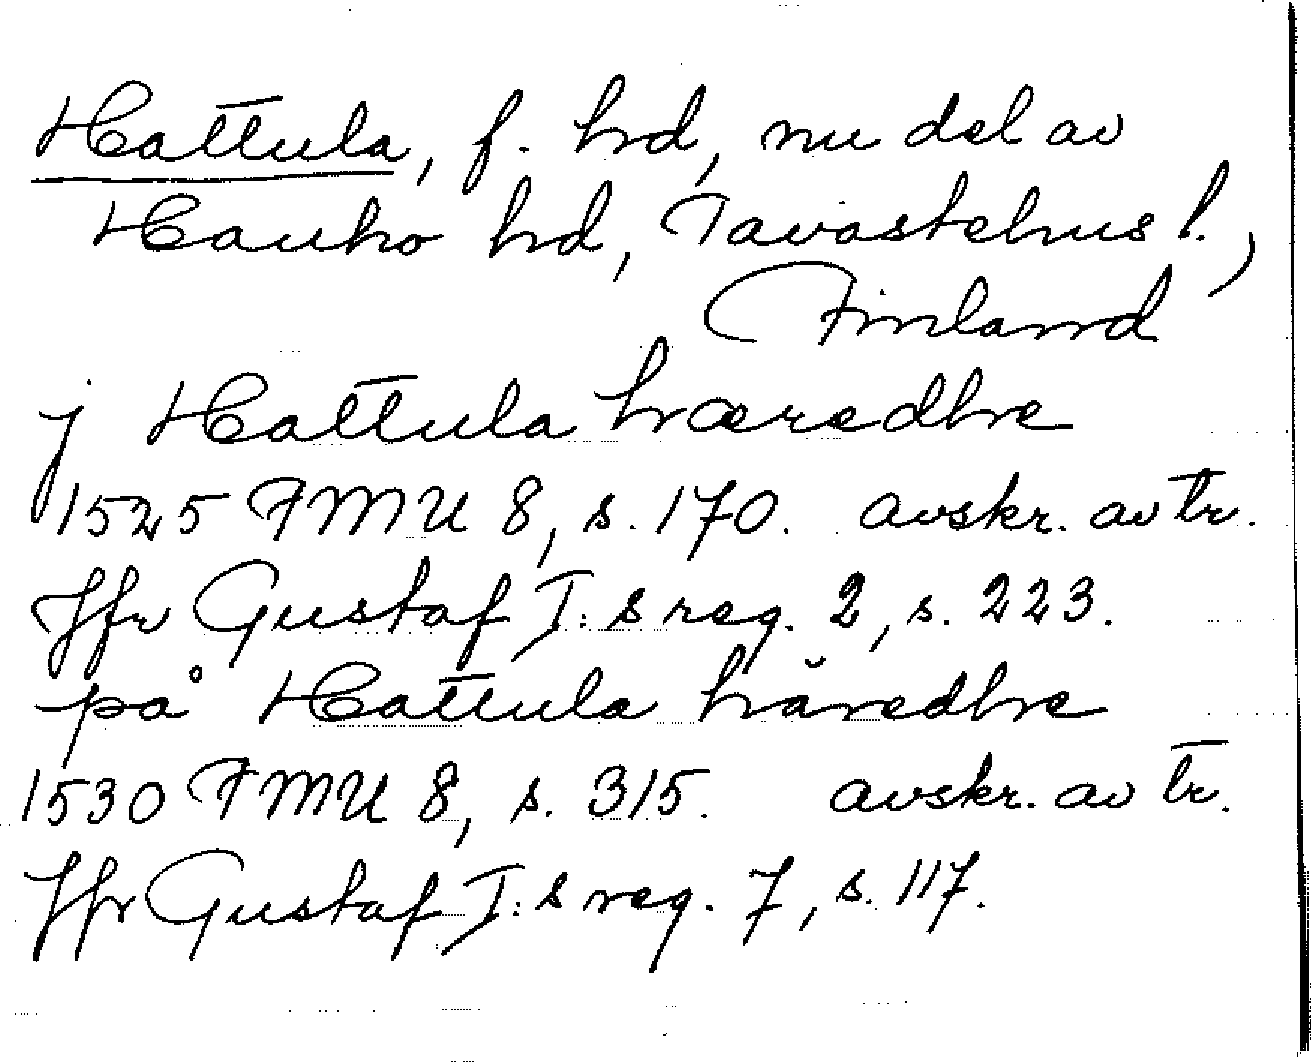 Hattula, f. hd, nu del av
Hauho hd, Tavastehus l.,
Finland
j Hattula hæredhe
1525 FMU 8, s. 170. avskr. av tr.
Jfr Gustaf I:s reg. 2, s. 223.
på Hattula häredhe
1530 FMU 8, s. 315. avskr. av tr.
Jfr Gustaf I:s reg. 7, s. 117.